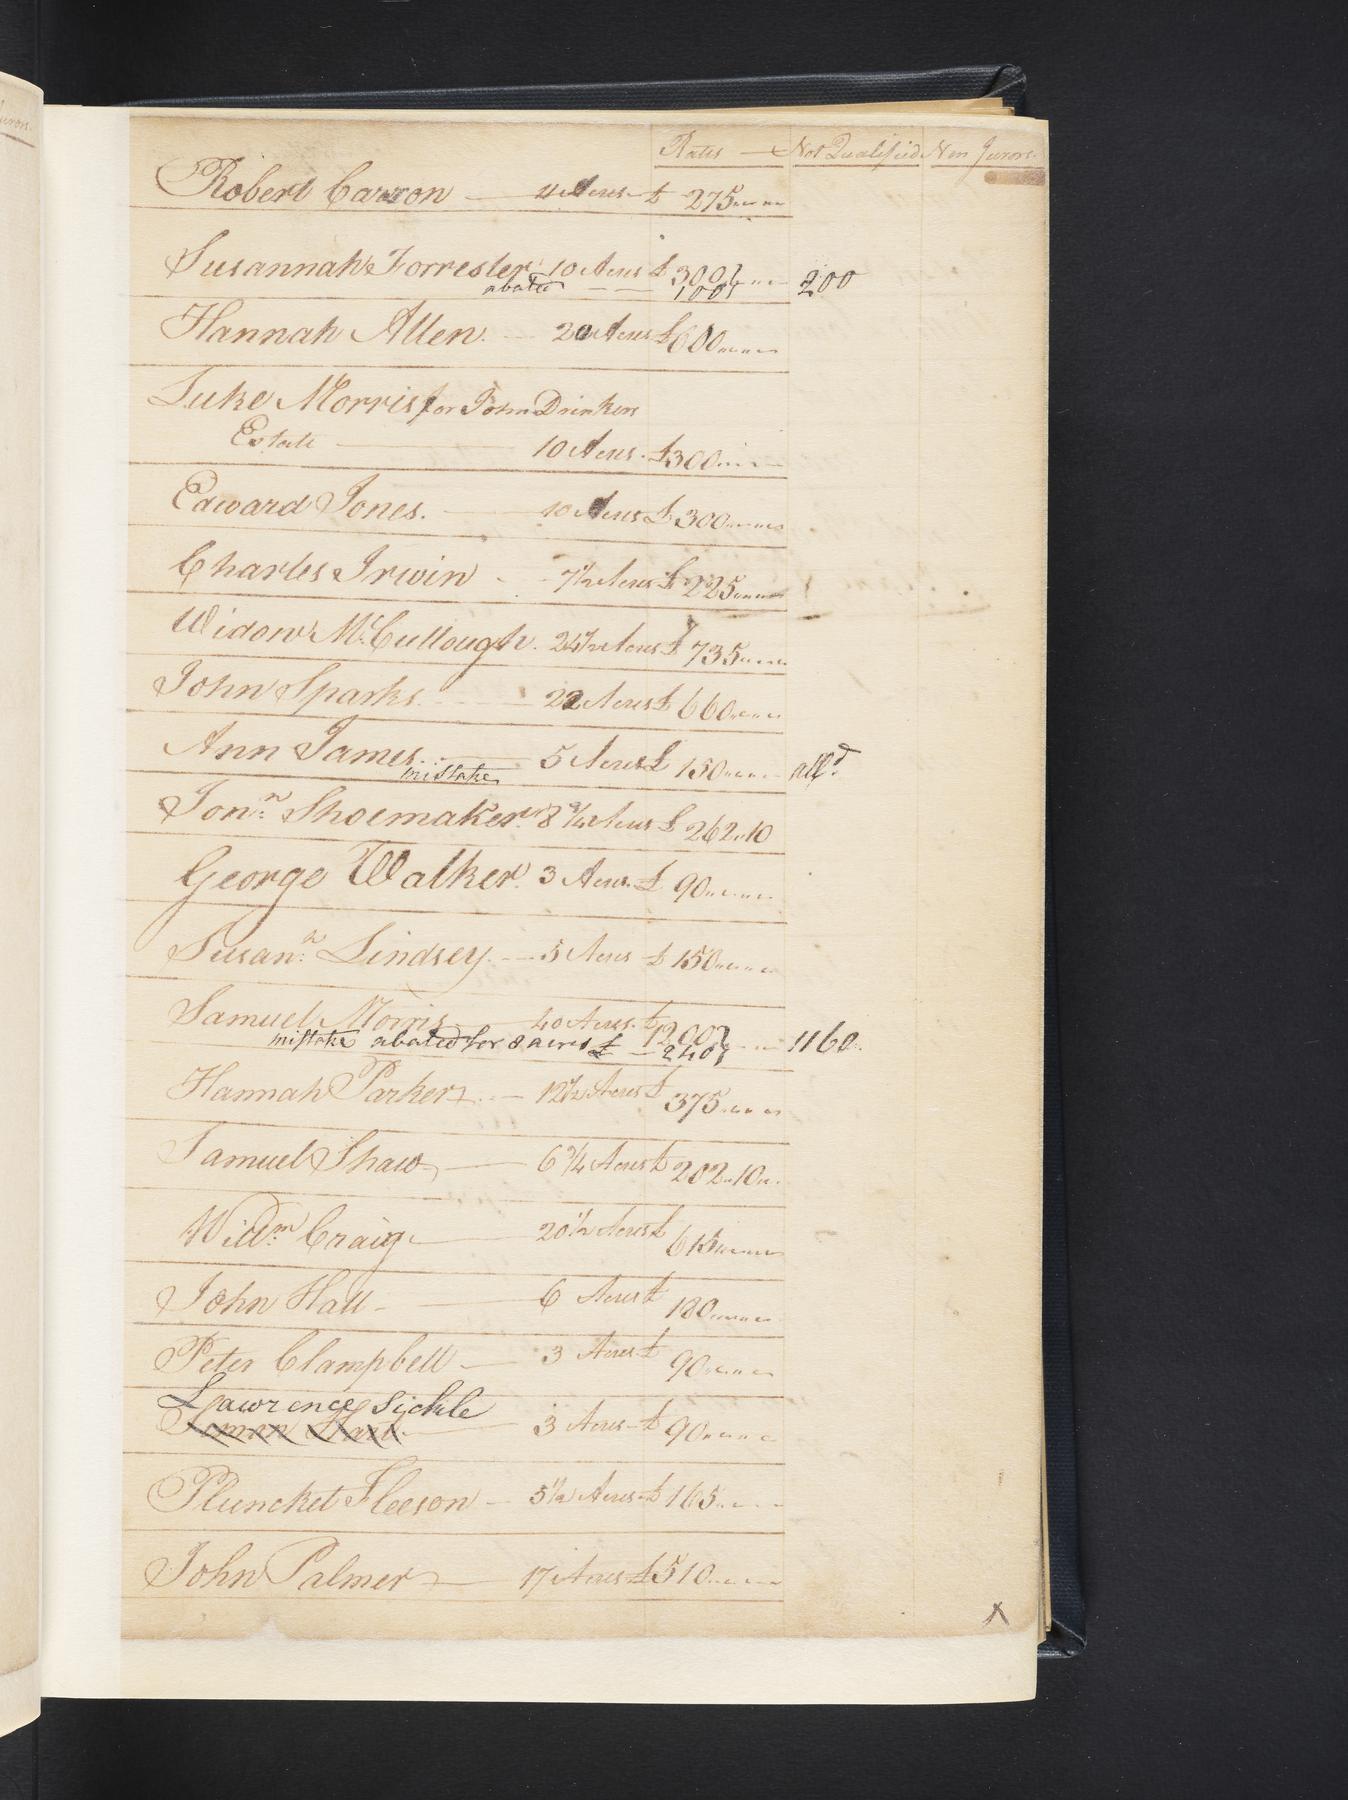 Jurors.
Rates — Not Qualified Non Jurors.
Robert Carson — 4 Acres £ 275
Susannah Forrester 10 Acres £ 300
abated — — 100 200
Hannah Allen. — 20 Acres £ 600
Luke Morris for John Drinkers
Estate — 10 Acres. £ 300
Edward Jones. — 10 Acres £ 300
Charles Irwin - - 7½ Acres £ 225
Widow McCullough. 24½ Acres £ 735
John Sparks — 22 Acres £ 660
Ann James — 5 Acres £ 150 all.d
mistake
Jon.n Shoemaker 8 ¾ Acres £ 262.10
George Walker. 3 Acres. £ 90
Susan.a Lindsey. — 5 Acres £ 150
Samuel Morris — 40 Acres. £ 1200
mistake abated for 8 acres £ — 240 1160
Hannah Parker — 12½ Acres £ 375
Samuel Shaw — 6 ¾ Acres £ 202.10
Will.m Craig — 20½ Acres £ 615
John Hall — 6 Acres £ 180
Peter Clampbell — 3 Acres £ 90
Lawrence Sickle
3 Acres £ 90
Pluncket Fleeson — 5½ Acres £ 165
John Palmer — 17 Acres £ 510
X